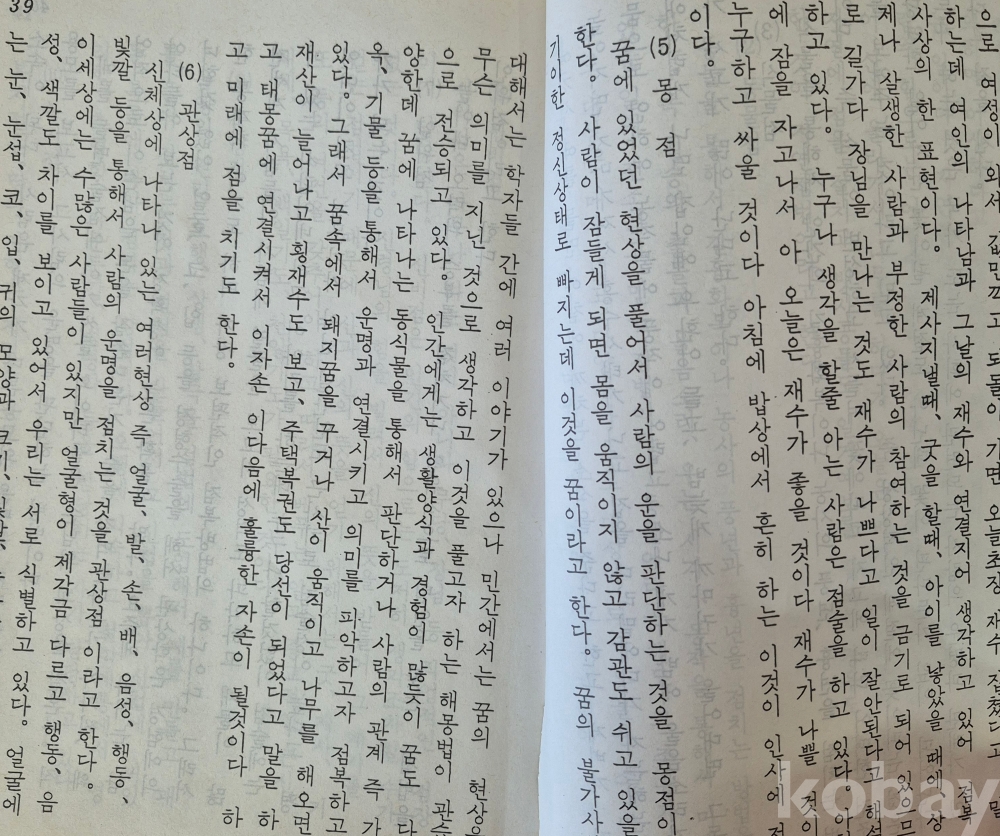 으로 여성이 와서 값만깎고 되돌아 가면 오늘초장 재수 잡쳤다고 말
하는데 여인의 나타남과 그날의 재수와 연결지어 생각하고 있어 점복
사상의 한 표현이다. 제사지낼때, 굿을 할때, 아이를 낳았을 때에 상
제나 살생한 사람과 부정한 사람의 참여하는 것을 금기도 되어 있으므
로 길가다 장님을 만나는 것도 재수가 나쁘다고 일이 잘안된다고 해석
하고 있다. 누구나 생각을 할줄 아는 사람은 점술을 하고 있다.
에 잠을 자고나서 아 오늘은 재수가 좋을 것이다 재수가 나쁠 것이
누구하고 싸울 것이다 아침에 밥상에서 흔히 하는 이것이 인사에
이다.
(5) 몽 점
꿈에 있었던 현상을 풀어서 사람의 운을 판단하는 것을 몽점이
한다. 사람이 잠들게 되면 몸을 움직이지 않고 감관도 쉬고 있을
기이한 정신상태로 빠지는데 이것을 꿈이라고 한다. 꿈의 불가사
39
대해서는 학자들 간에 여러 이야기가 있으나 민간에서는 꿈의 현상을
무슨 의미를 지닌 것으로 생각하고 이것을 풀고자 하는 해몽법이 관습
으로 전승되고 있다. 인간에게는 생활양식과 경험이 많듯이 꿈도 다
양한데 꿈에 나타나는 동식물을 통해서 판단하거나 사람의 관계 즉 가
옥, 기물 등을 통해서 운명과 연결시키고 의미를 파악하고자 점복하고
있다. 그래서 꿈속에서 돼지꿈을 꾸거나 산이 움직이고 나무를 해오면
재산이 늘어나고 횡재수도 보고, 주택복권도 당선이 되었다고 말을 하
고 태몽꿈에 연결시켜서 이자손 이다음에 훌륭한 자손이 될것이다 하
고 미래에 점을 치기도 한다.
(6) 관상점
신체상에 나타나 있는 여러현상 즉 얼굴, 발, 손, 배, 음성, 행동,
빛깔 등을 통해서 사람의 운명을 점치는 것을 관상점 이라고 한다.
이세상에는 수많은 사람들이 있지만 얼굴형이 제각금 다르고 행동, 음
성, 색깔도 차이를 보이고 있어서 우리는 서로 식별하고 있다. 얼굴에
는 눈, 눈섭, 코, 입, 귀의 모양과 크기, 빛깔,
kobay